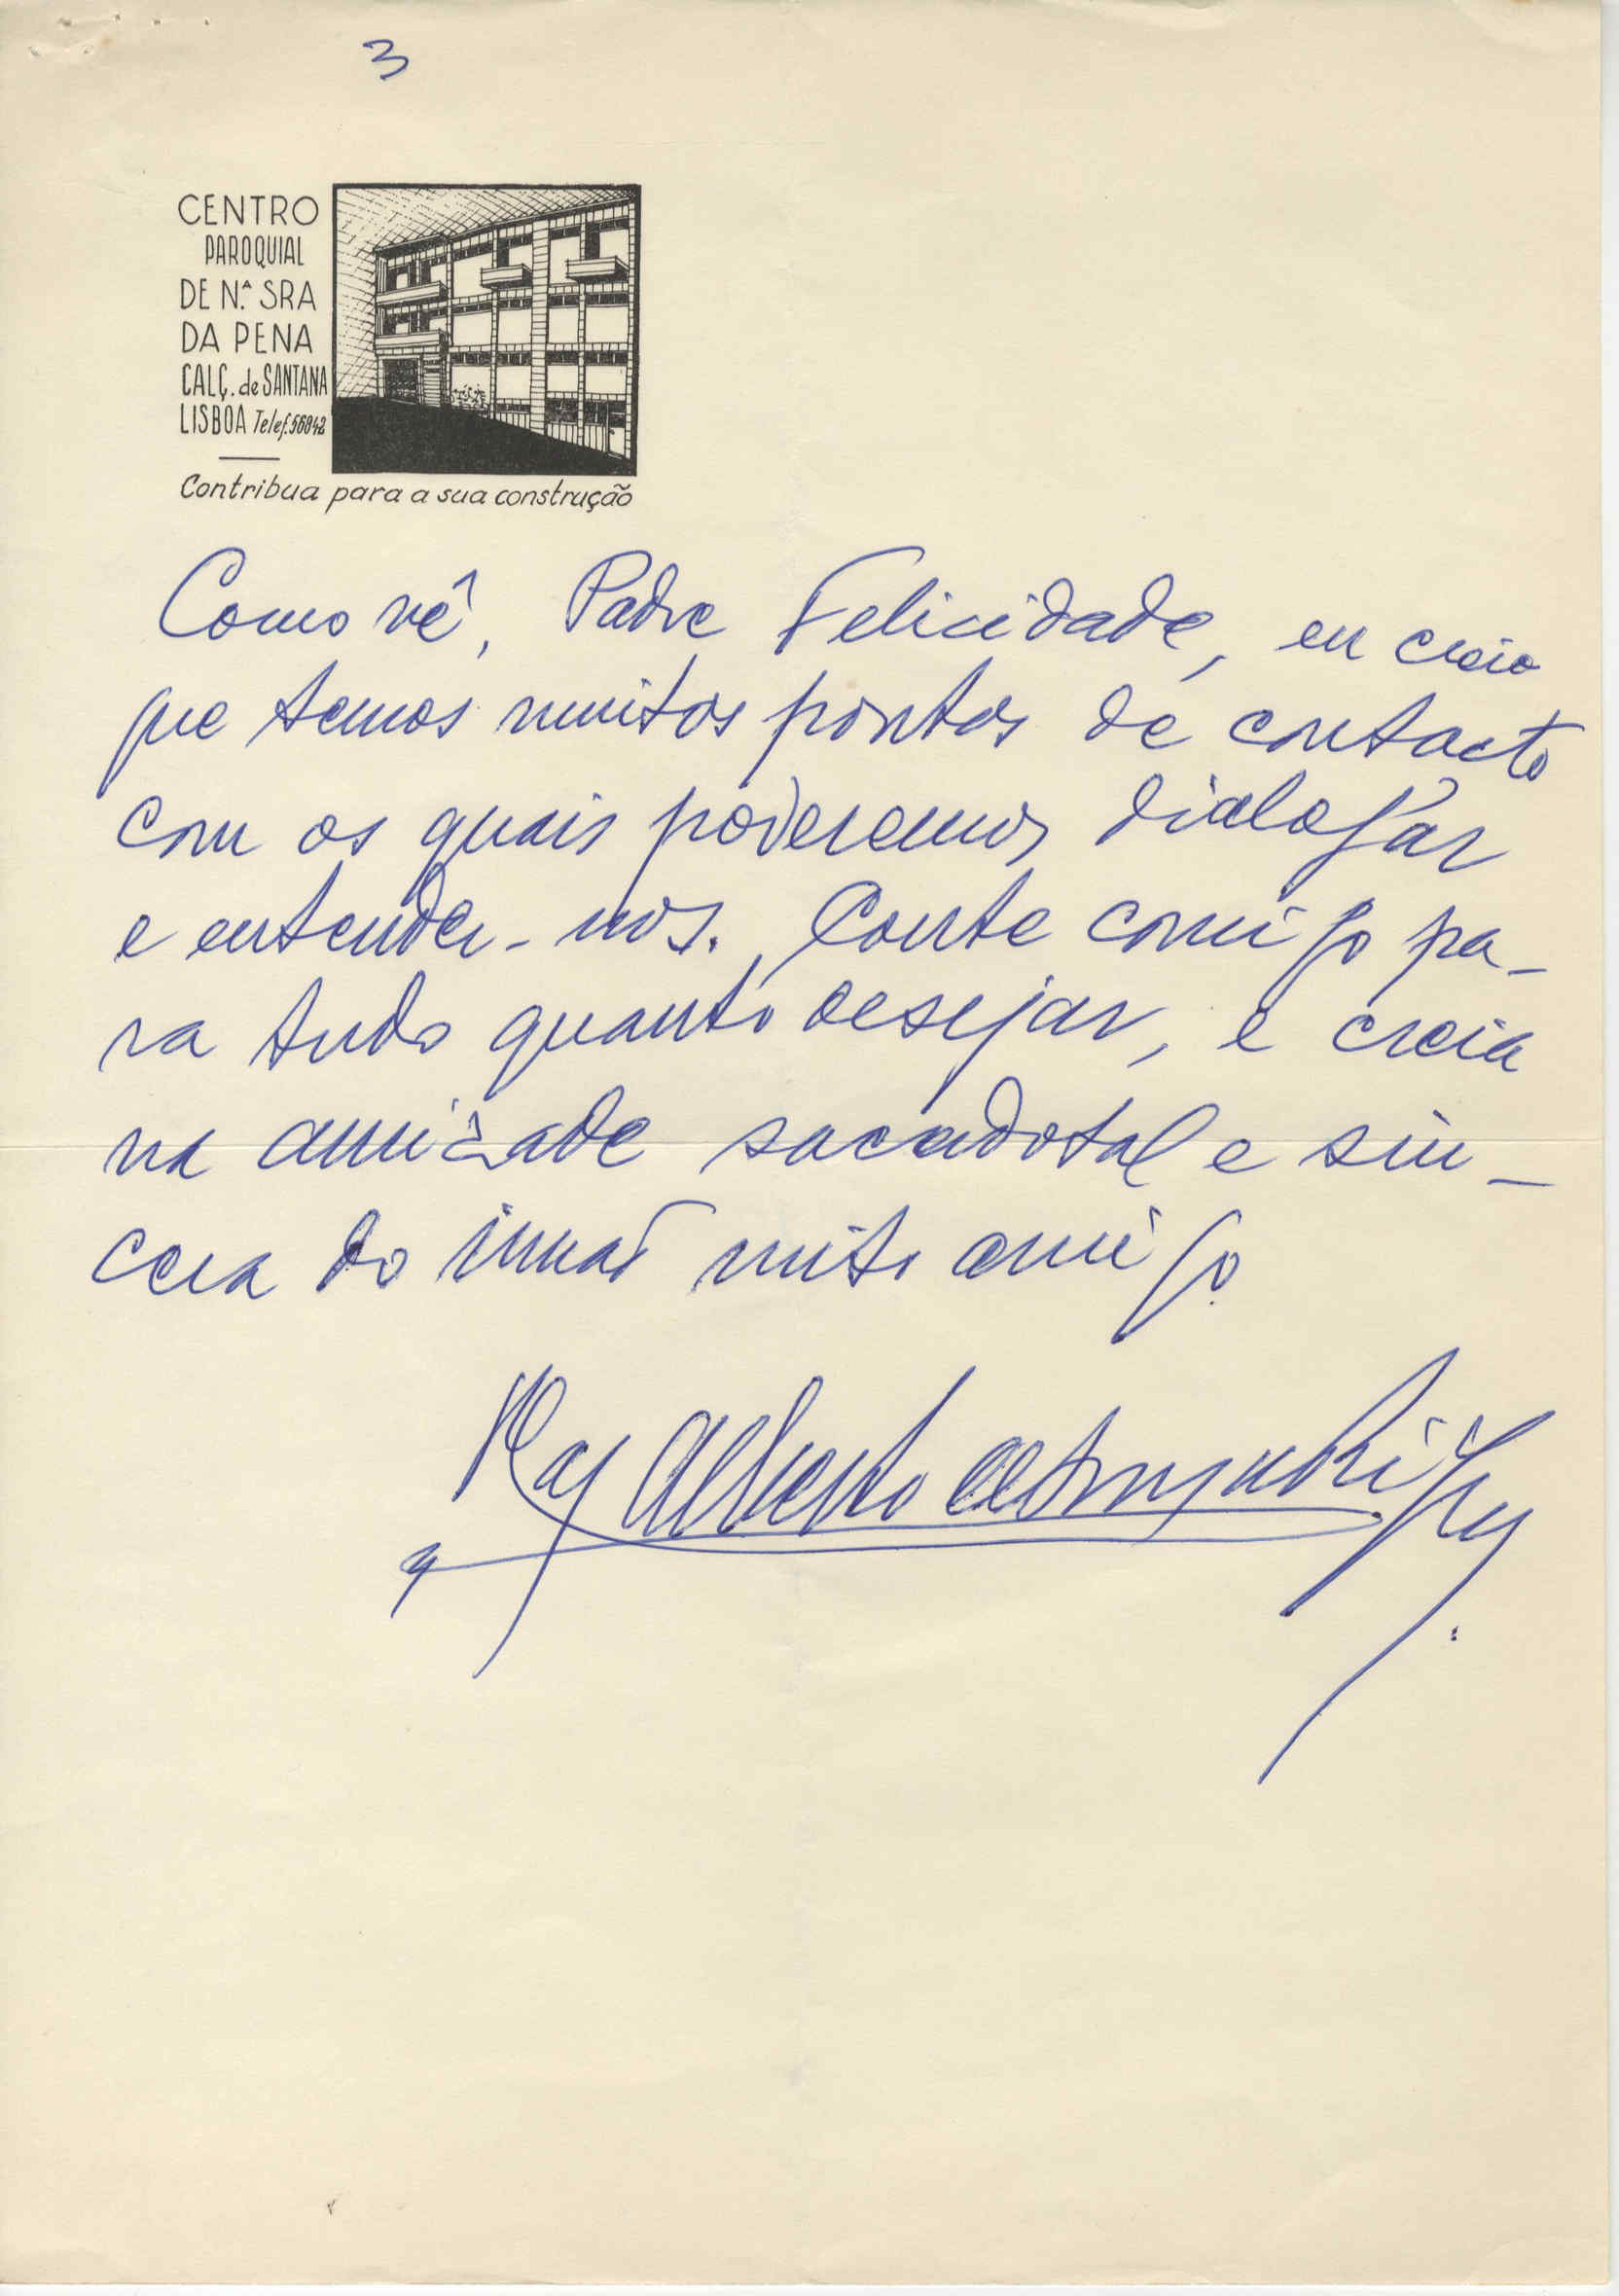 3
CENTRO
PAROQUIAL
DE N.ª SRA
DA PENA
CALÇ. de SANTANA
LISBOA Telef. 56842
Contribua para a sua construção
Como vê, Padre Felicidade, eu creio
que temos muitos pontos de contacto
com os quais poderemos dialogar
e entender-nos. Conte comigo pa-
ra tudo quanto desejar, e creia
na amizade sacerdotal e sin-
cera do irmão muito amigo
Alberto